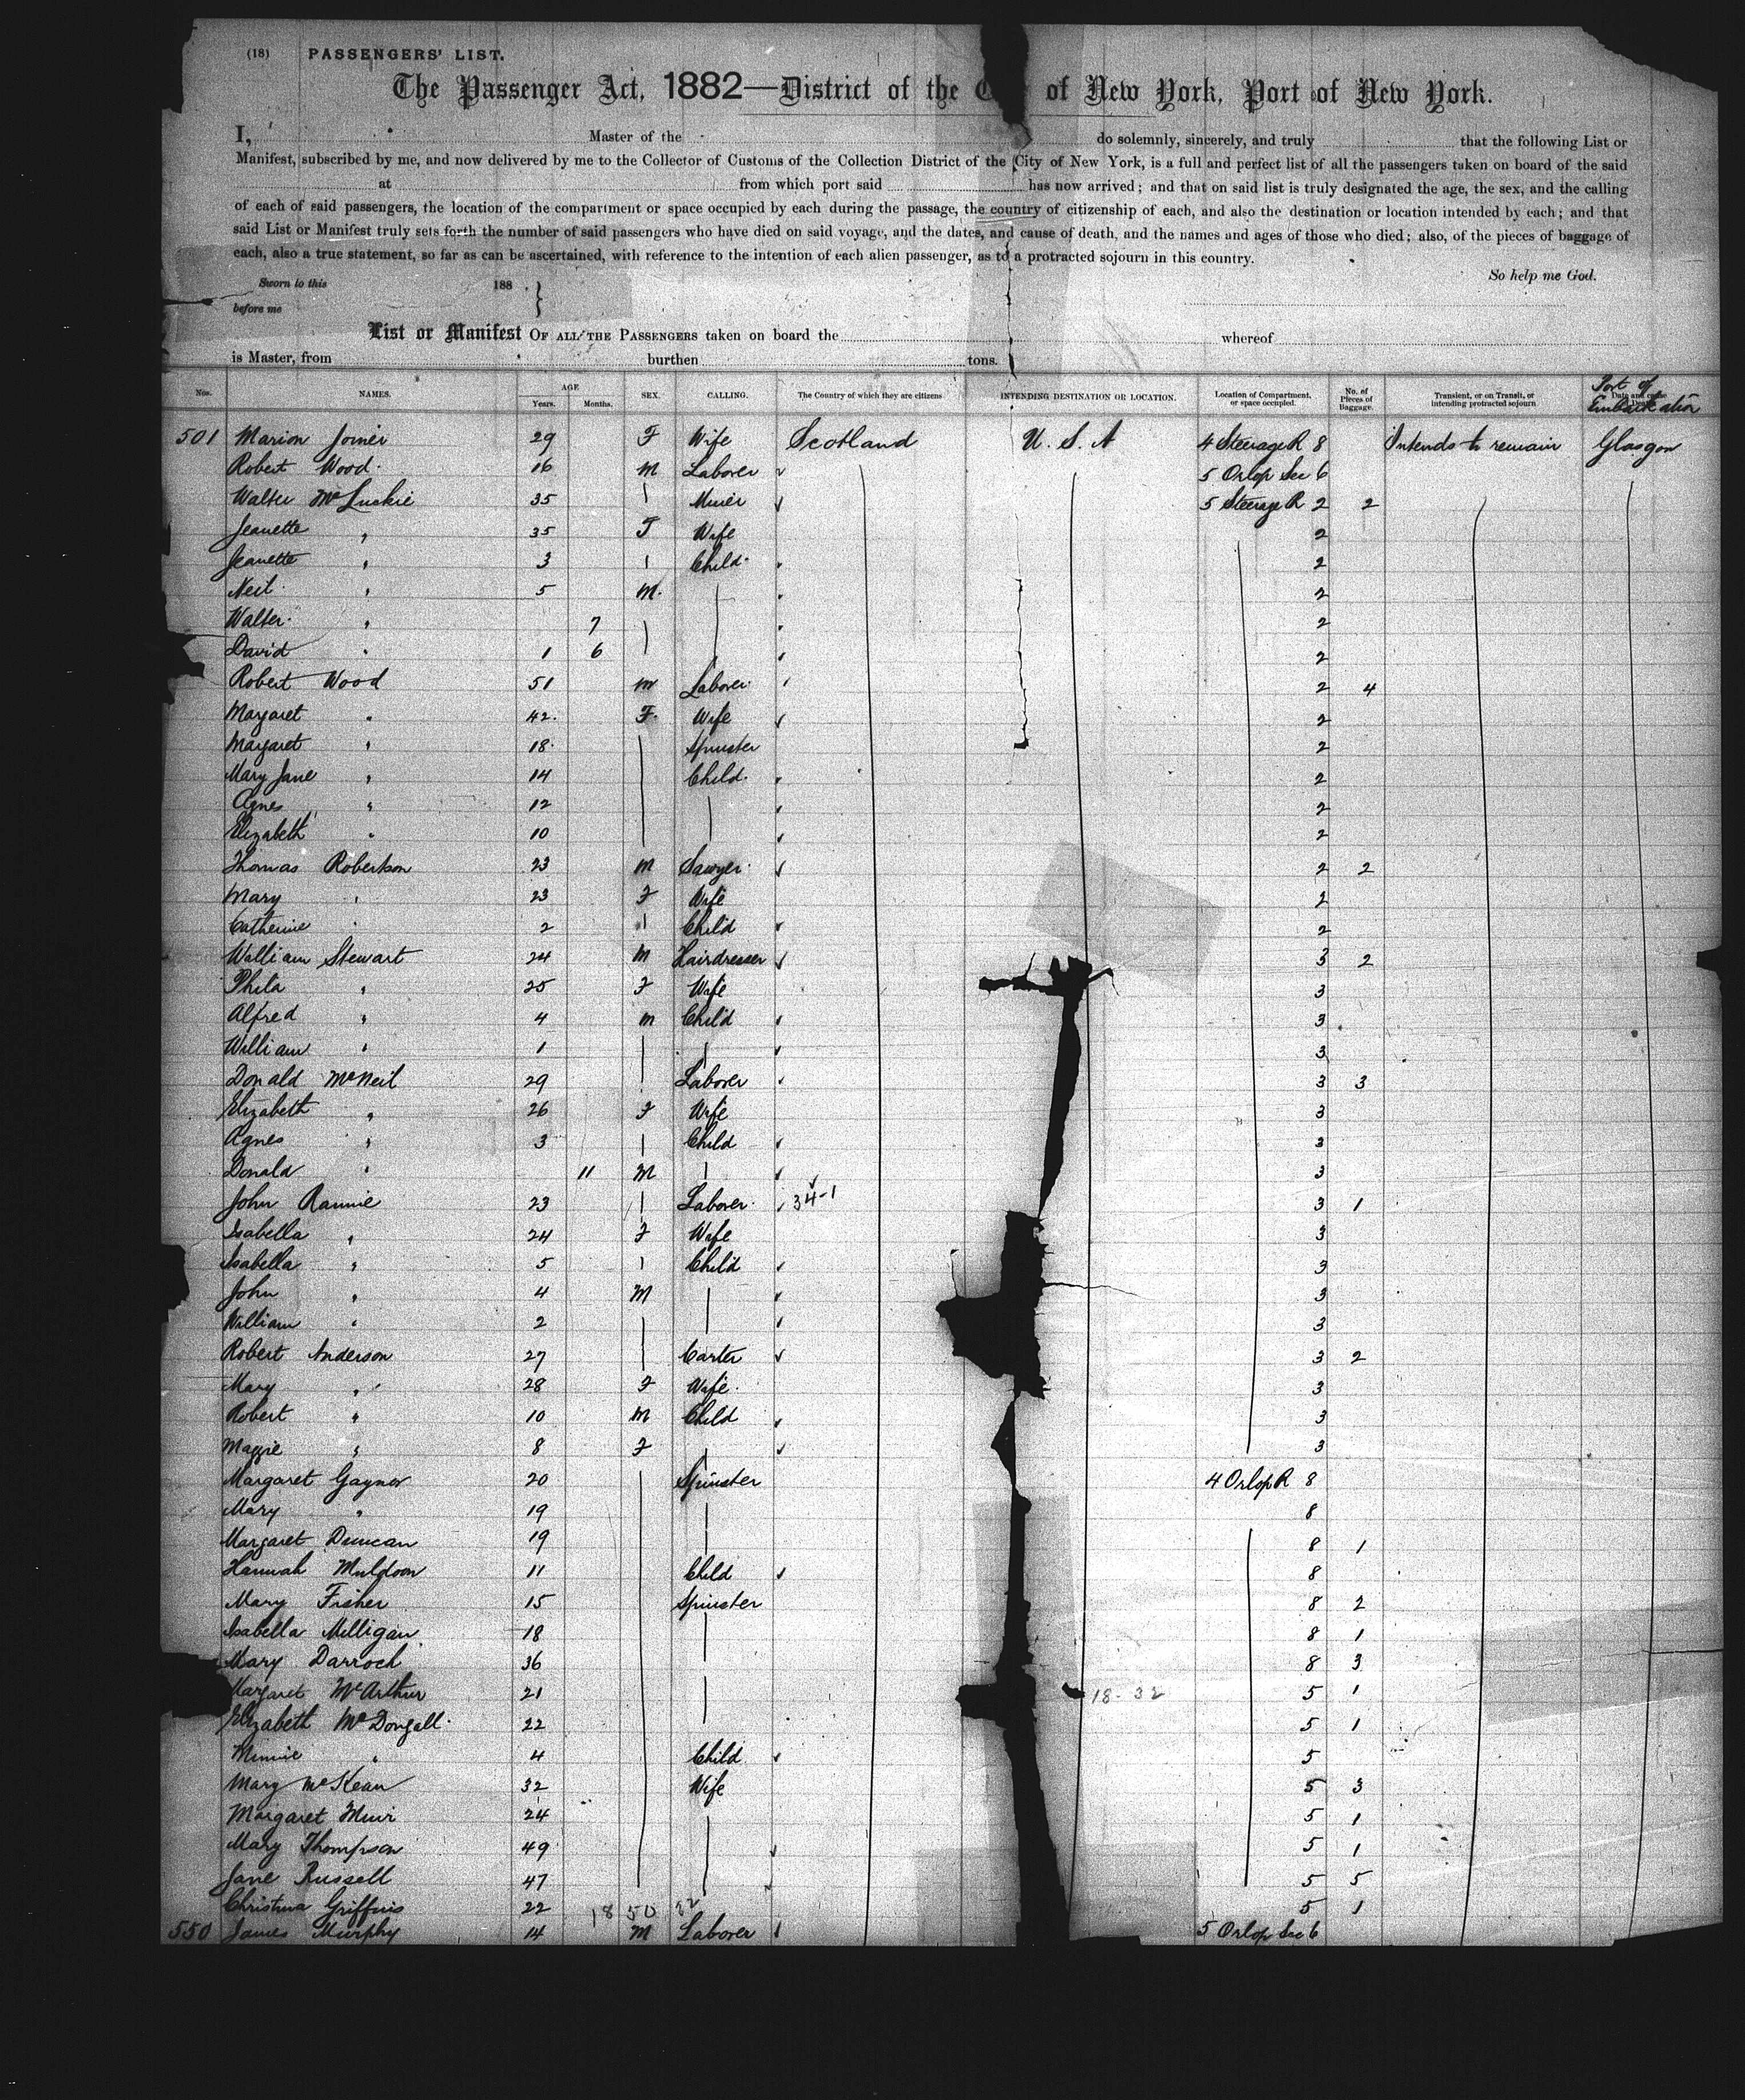 (18) PASSENGERS' LIST.
The Passenger Act, 1882—District of the C of New York, Port of New York.
I, Master of the do solemnly, sincerely, and truly that the following List or
Manifest, subscribed by me, and now delivered by me to the Collector of Customs of the Collection District of the City of New York, is a full and perfect list of all the passengers taken on board of the said
at from which port said has now arrived; and that on said list is truly designated the age, the sex, and the calling
of each of said passengers, the location of the compartment or space occupied by each during the passage, the country of citizenship of each, and also the destination or location intended by each; and that
said List or Manifest truly sets forth the number of said passengers who have died on said voyage, and the dates, and cause of death, and the names and ages of those who died; also, of the pieces of baggage of
each, also a true statement, so far as can be ascertained, with reference to the intention of each alien passenger, as to a protracted sojourn in this country.
So help me God.
Sworn to this 188
before me
List or Manifest OF ALL THE PASSENGERS taken on board the whereof
is Master, from burthen tons.
Nos. NAMES. AGE Years. Months. SEX. CALLING. The Country of which they are citizens INTENDING DESTINATION OR LOCATION. Location of Compartment, or space occupied. No. of Pieces of Baggage. Transient, or on Transit, or intending protracted sojourn Port of Embarkation
501 Marion Joiner 29 F Wife Scotland U. S. A 4 Steerage R 8 Intends to remain Glasgow
Robert Wood 16 M Laborer 5 Orlop Sec 6
Walter McLuckie 35 " Miner 5 Steerage R 2 2
Jeanette " 35 F Wife 2
Jeanette " 3 " Child 2
Neil " 5 M. 2
Walter " 7 2
David " 1 6 2
Robert Wood 51 M Laborer 2 4
Margaret " 42 F. Wife 2
Margaret " 18 Spinster 2
Mary Jane " 14 Child 2
Agnes " 12 2
Elizabeth " 10 2
Thomas Robertson 23 M Sawyer 2 2
Mary " 23 F Wife 2
Catherine " 2 " Child 2
William Stewart 24 M Hairdresser 3 2
Phila " 25 F Wife 3
Alfred " 4 M Child 3
William " 1 3
Donald McNeil 29 Laborer 3 3
Elizabeth " 26 F Wife 3
Agnes " 3 Child 3
Donald " 11 M 3
John Rannie 23 Laborer 34-1 3 1
Isabella " 24 F Wife 3
Isabella " 5 " Child 3
John " 4 M 3
William " 2 3
Robert Anderson 27 Carter 3 2
Mary " 28 F Wife 3
Robert " 10 M Child 3
Maggie " 8 F 3
Margaret Gaynor 20 Spinster 4 Orlop R 8
Mary " 19 8
Margaret Duncan 19 8 1
Hannah Muldoon 11 Child 8
Mary Fisher 15 Spinster 8 2
Isabella Milligan 18 8 1
Mary Darroch 36 8 3
Margaret McArthur 21 18-32 5 1
Elizabeth McDougall 22 5 1
Minnie " 4 Child 5
Mary McKean 32 Wife 5 3
Margaret Muir 24 5 1
Mary Thompson 49 5 1
Jane Russell 47 5 5
Christina Griffins 22 18 50 22 5 1
550 James Murphy 14 M Laborer 5 Orlop Sec 6